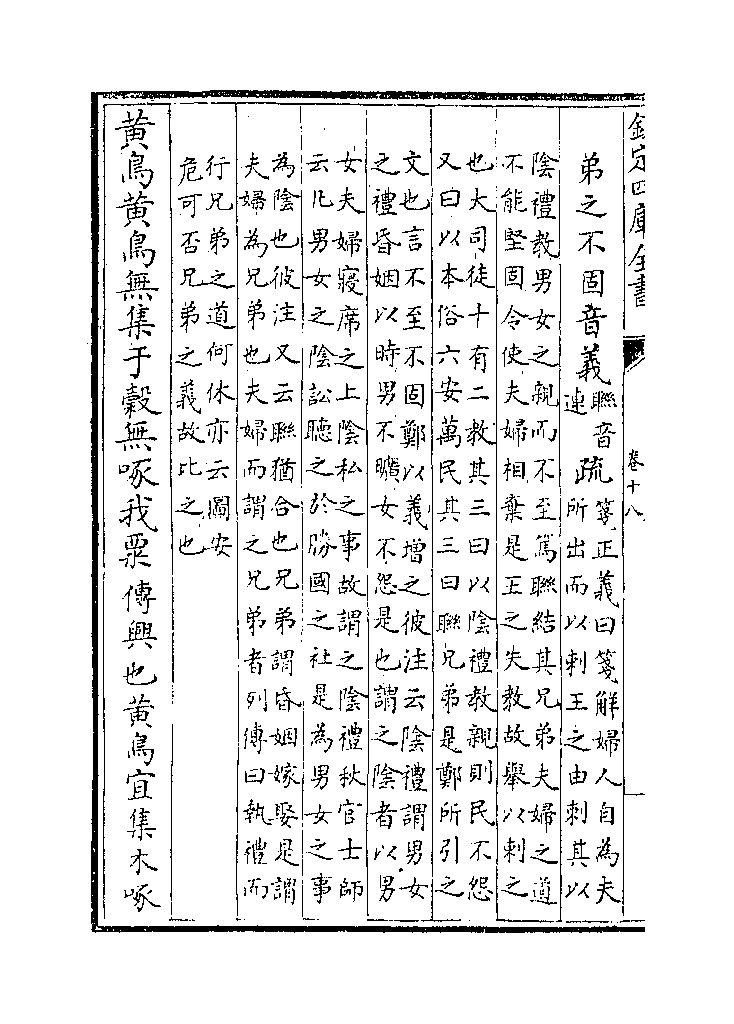 欽定四庫全書
卷十八
弟之不固音義聯音
連
疏箋正義曰箋解婦人自為夫
所出而以刺王之由刺其以
陰禮教男女之親而不至篤聯結其兄弟夫婦之道
不能堅固令使夫婦相棄是王之失教故舉以刺之
也大司徒十有二教其三曰以陰禮教親則民不怨
又曰以本俗六安萬民其三曰聯兄弟是鄭所引之
文也言不至不固鄭以義增之彼注云陰禮謂男女
之禮昏姻以時男不曠女不怨是也謂之陰者以男
女夫婦寢席之上陰私之事故謂之陰禮秋官士師
云凡男女之陰訟聽之於勝國之社是為男女之事
為陰也彼注又云聯猶合也兄弟謂昏姻嫁娶是謂
夫婦為兄弟也夫婦而謂之兄弟者列傳曰執禮而
行兄弟之道何休亦云圖安
危可否兄弟之義故比之也
黃鳥黃鳥無集于穀無啄我粟傳興也黃鳥宜集木啄